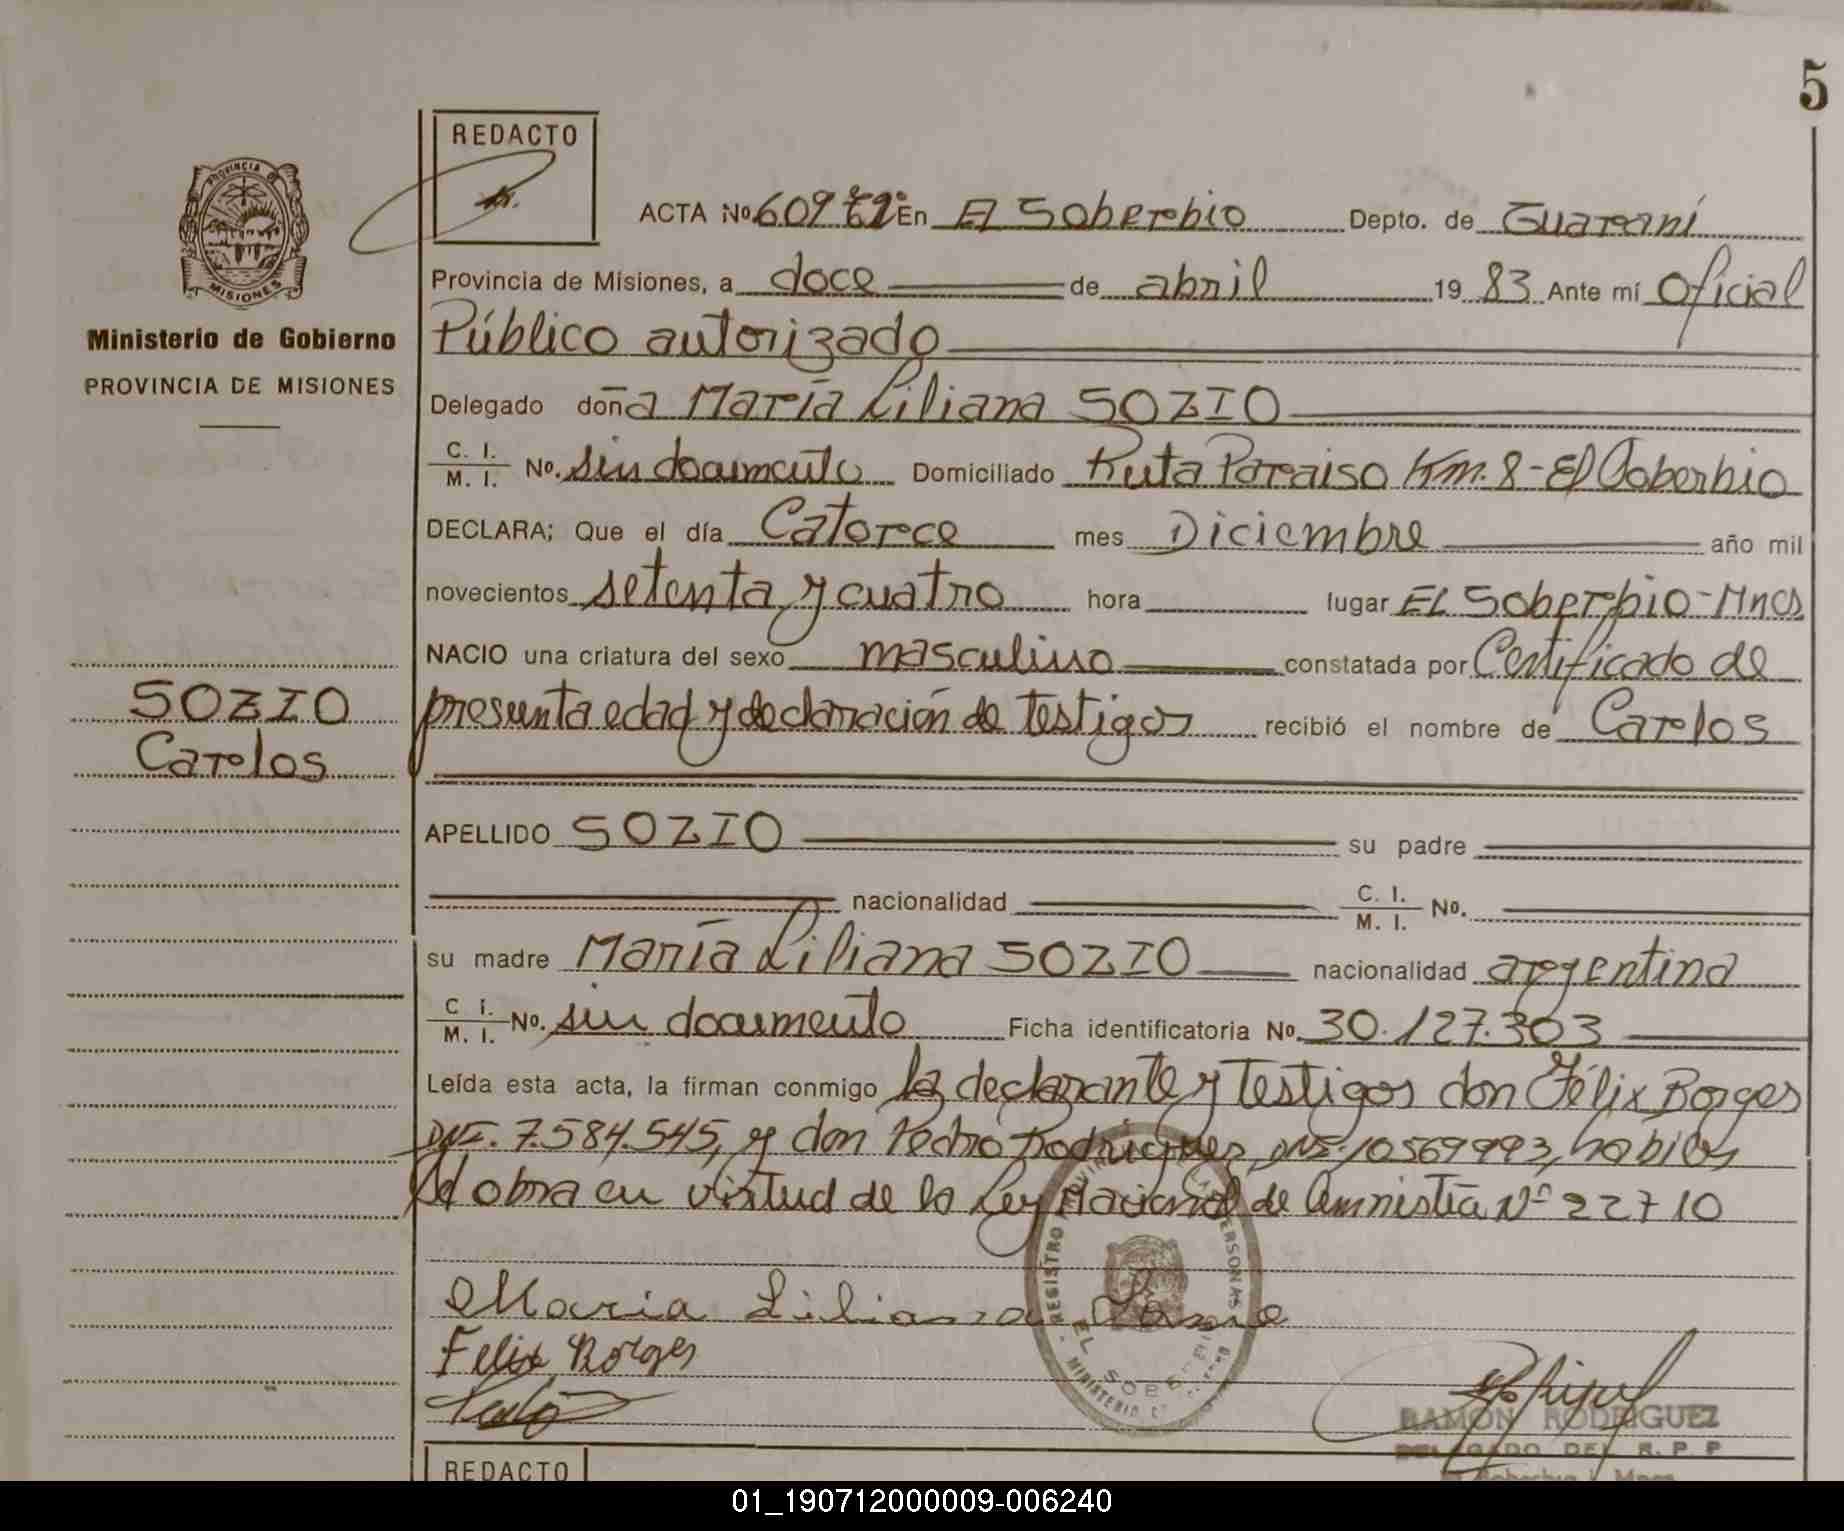 5
REDACTO
PROVINCIA DE
MISIONES
Ministerio de Gobierno
PROVINCIA DE MISIONES
ACTA No. 609 En El Soberbio Depto. de Guaraní
Provincia de Misiones, a doce de abril 19 83 Ante mí Oficial
Público autorizado
Delegado doña María Liliana SOZIO
C. I.
M. I. No. sin documento Domiciliado Ruta Paraiso Km. 8 - El Soberbio
DECLARA; Que el día Catorce mes Diciembre año mil
novecientos setenta y cuatro hora lugar El Soberbio - Mnes
NACIO una criatura del sexo masculino constatada por Certificado de
presunta edad y declaración de testigos recibió el nombre de Carlos
SOZIO
Carlos
APELLIDO SOZIO su padre
nacionalidad C. I.
M. I. No.
su madre María Liliana SOZIO nacionalidad argentina
C I.
M. I. No. sin documento Ficha identificatoria No. 30.127.303
Leída esta acta, la firman conmigo la declarante y Testigos don Félix Borges
DNI. 7.584.545, y don Pedro Rodriguez, DNI. 10569993, habiles
obra en virtud de la Ley Nacional de Amnistía Nº 22710
Maria Liliana
Felix Borges
REGISTRO
PERSONAS
EL SOBERBIO
RAMON RODRIGUEZ
DELEGADO DEL R. P. P
REDACTO
01_190712000009-006240